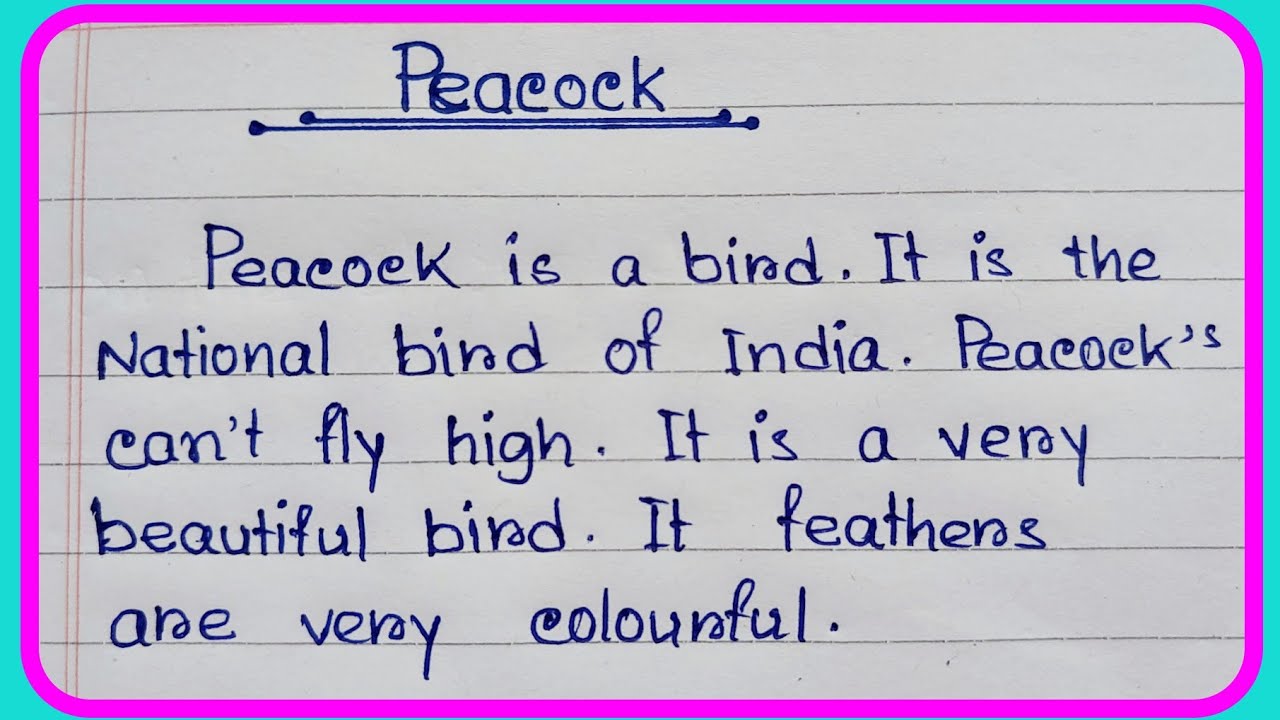 Peacock
Peacock is a bird. It is the
National bird of India. Peacock's
can't fly high. It is a very
beautiful bird. It feathers
are very colourful.